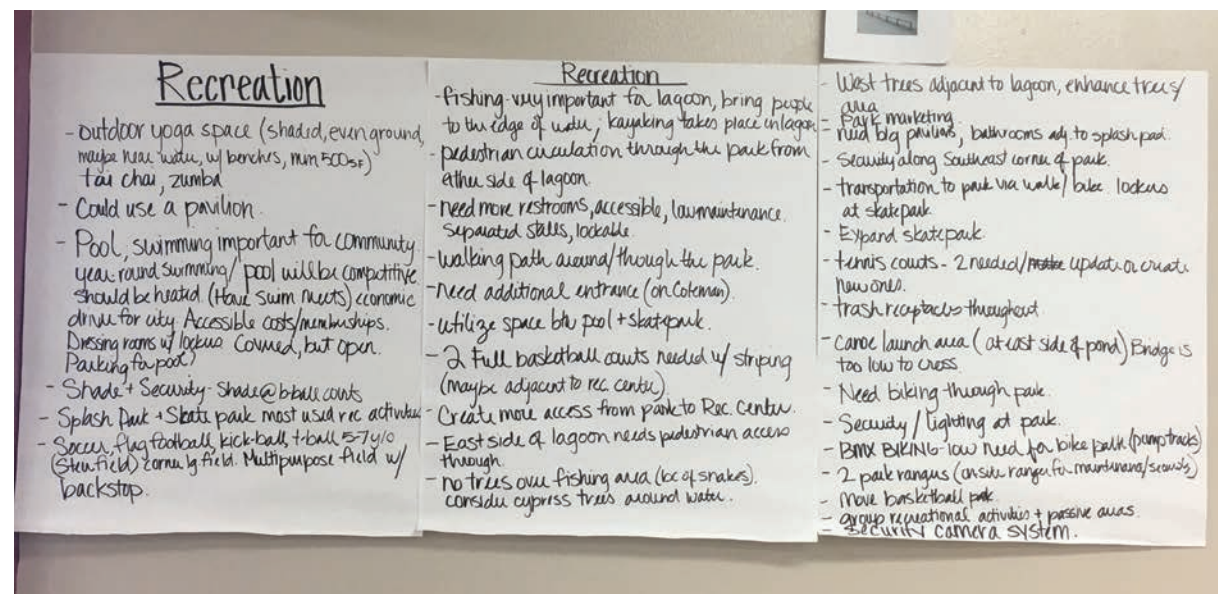 Recreation
- outdoor yoga space (shaded, even ground,
maybe near water, w/ benches, min 500SF)
tai chai, zumba
- Could use a pavilion.
- Pool, swimming important for community
year-round swimming/ pool will be competitive
should be heated. (Have swim meets) economic
driver for city. Accessible costs/memberships.
Dressing rooms w/ lockers Covered, but open.
Parking for pool?
- Shade + Security- Shade @ b-ball courts
- Splash Park + Skate park most used rec activities
- Soccer, flag football, kick-ball, t-ball 5-7 y/o
field) corner lg. field. Multipurpose field w/
backstop.
Recreation
- fishing-very important for lagoon, bring people
to the edge of water; kayaking takes place in lagoon
- pedestrian circulation through the park from
either side of lagoon.
- need more restrooms, accessible, low maintenance.
separated stalls, lockable.
- walking path around/through the park.
- Need additional entrance (on Coleman).
- utilize space btw pool + skatepark.
- 2 full basketball courts needed w/ striping
(maybe adjacent to rec. center).
- Create more access from park to Rec. Center.
- East side of lagoon needs pedestrian access
through.
- no trees over fishing area (bc of snakes).
consider cypress trees around water.
- West trees adjacent to lagoon, enhance trees/
area
- Park marketing
- need big pavilions, bathrooms adj. to splash pad.
- Security along Southeast corner of park.
- transportation to park via walk/ bike. lockers
at skatepark
- Expand skatepark
- tennis courts - 2 needed/ update or create
new ones.
- trash receptacles throughout
- Canoe launch area (at east side of pond) Bridge is
too low to cross
- Need biking through park.
- Security / lighting at park.
- BMX BIKING- low need for bike path (pump tracks)
- 2 park rangers (on site ranger for maintenance/security)
- Move basketball park.
- group recreational activities + passive areas.
- Security camera system.